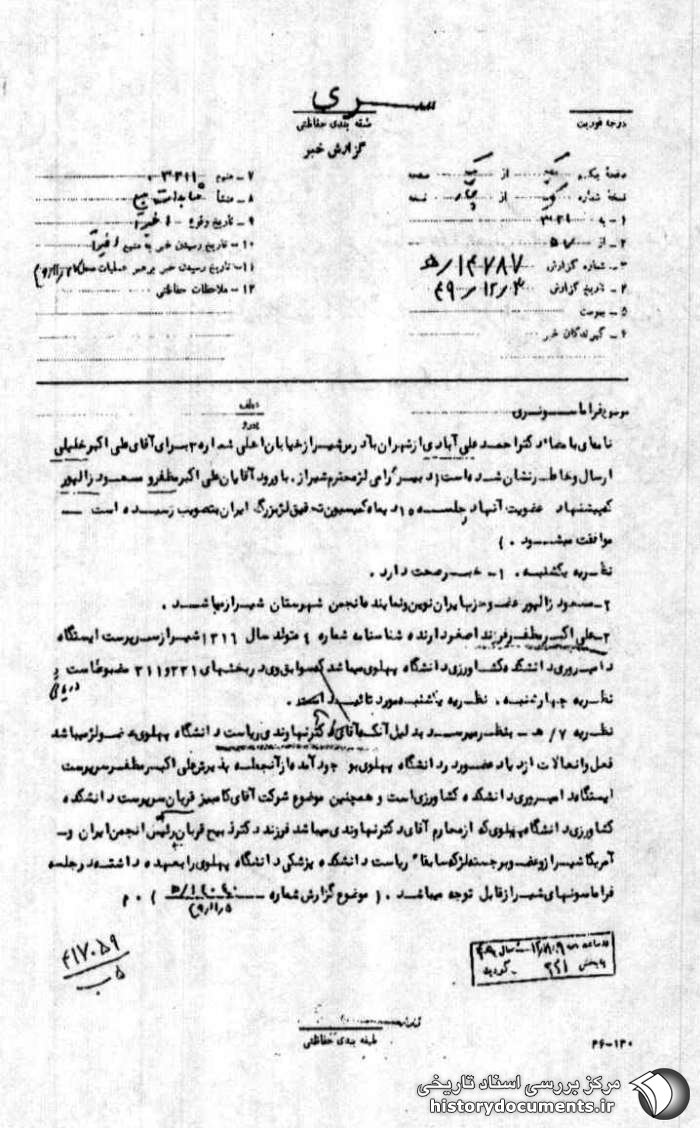 سری
طبقه بندی حفاظتی
گزارش خبر
درجه فوریت
صفحه یکم از صفحه
نسخه شماره از نسخه
۱ـ به ۳۲۱
۲ـ از
۳ـ شماره گزارش ۱۴۷۸۷/ھ
۴ـ تاریخ گزارش ۴۹/۱۲/۴
۵ـ پیوست
۶ـ گیرندگان خبر
۷ـ منبع
۸ـ منشأ
۹ـ تاریخ وقوع اخیرا
۱۰ـ تاریخ رسیدن خبر به منبع اخیرا
۱۱ـ تاریخ رسیدن خبر برهبر عملیات
۱۲ـ ملاحظات حفاظتی
موضوع فراماسونری
نامه‌ای با امضاء دکتر احمد علی آبادی از تهران بآدرس شیراز خیابان اعلی شماره ۳ برای آقای علی اکبر خلیلی
ارسال و خاطرنشان شده است (دبیر گرامی لژ محترم شیراز. با ورود آقایان علی اکبر مظفر و مسعود زالپور
که پیشنهاد عضویت آنها در جلسه ۱۵ دیماه کمیسیون تحقیق لژ بزرگ ایران بتصویب رسیده است ـــ
موافقت میشود. )
نظریه یکشنبه. ۱ـ خبر صحت دارد.
۲ـ مسعود زالپور عضو حزب ایران نوین و نماینده انجمن شهرستان شیراز میباشد.
۳ـ علی اکبر مظفر فرزند اصغر دارنده شناسنامه شماره ۴ متولد سال ۱۳۱۶ شیراز سرپرست ایستگاه
دامپروری دانشکده کشاورزی دانشگاه پهلوی میباشد که سوابق وی در بخشهای ۳۳۱ و ۳۱۱ مضبوط است
نظریه چهارشنبه. نظریه یکشنبه مورد تائید است.
نظریه ۷/ھ ـ بنظر میرسد بدلیل آنکه آقای دکتر نهاوندی ریاست دانشگاه پهلوی عضو لژ میباشد
فعل و انفعالات ازدیاد عضو در دانشگاه پهلوی بوجود آمده از آنجمله پذیرش علی اکبر مظفر سرپرست
ایستگاه دامپروری دانشکده کشاورزی است و همچنین موضوع شرکت آقای کامبیز قربان سرپرست دانشکده
کشاورزی دانشگاه پهلوی که از محارم آقای دکتر نهاوندی میباشد فرزند دکتر ذبیح قربان رئیس انجمن ایران و ـ
آمریکا شیراز و عضو برجسته لژ که سابقاً ریاست دانشکده پزشکی دانشگاه پهلوی را بعهده داشته در جلسه
فراماسونهای شیراز قابل توجه میباشد. ( موضوع گزارش شماره ) . م
۴۱۷۰۵۹
ب ۵
طبقه بندی حفاظتی
۴۶-۱۳۰
مرکز بررسی اسناد تاریخی
historydocuments.ir